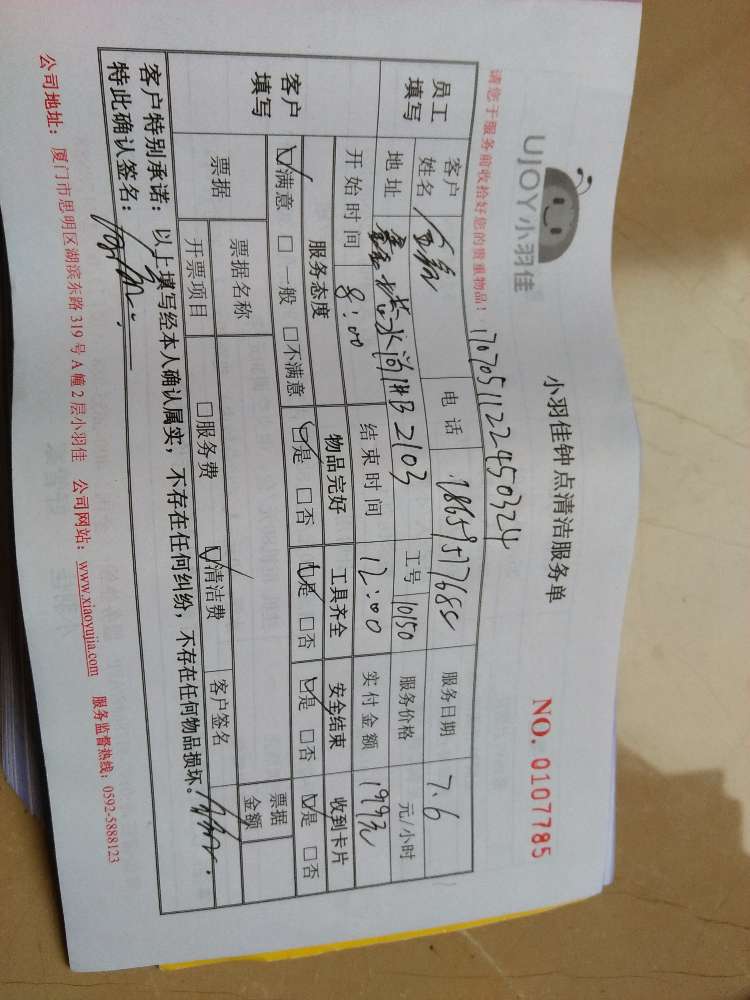 UJOY小羽佳
小羽佳钟点清洁服务单
NO. 0107785
请您于服务前收拾好您的贵重物品！
170705112245032​4
员工填写 客户姓名 电话 服务日期 7.6
地址 2103 工号 10150 服务价格 元/小时
开始时间 8:00 结束时间 12:00 实付金额 199元
客户填写 服务态度 物品完好 工具齐全 安全结束 收到卡片
☑满意 □一般 □不满意 ☑是 □否 ☑是 □否 ☑是 □否 ☑是 □否
票据 票据名称 票据金额
开票项目 □服务费 ☑清洁费 客户签名
客户特别承诺：以上填写经本人确认属实，不存在任何纠纷，不存在任何物品损坏。
特此确认签名：
公司地址：厦门市思明区湖滨东路319号A幢2层小羽佳 公司网站：www.xiaoyujia.com 服务监督热线：0592-5888123